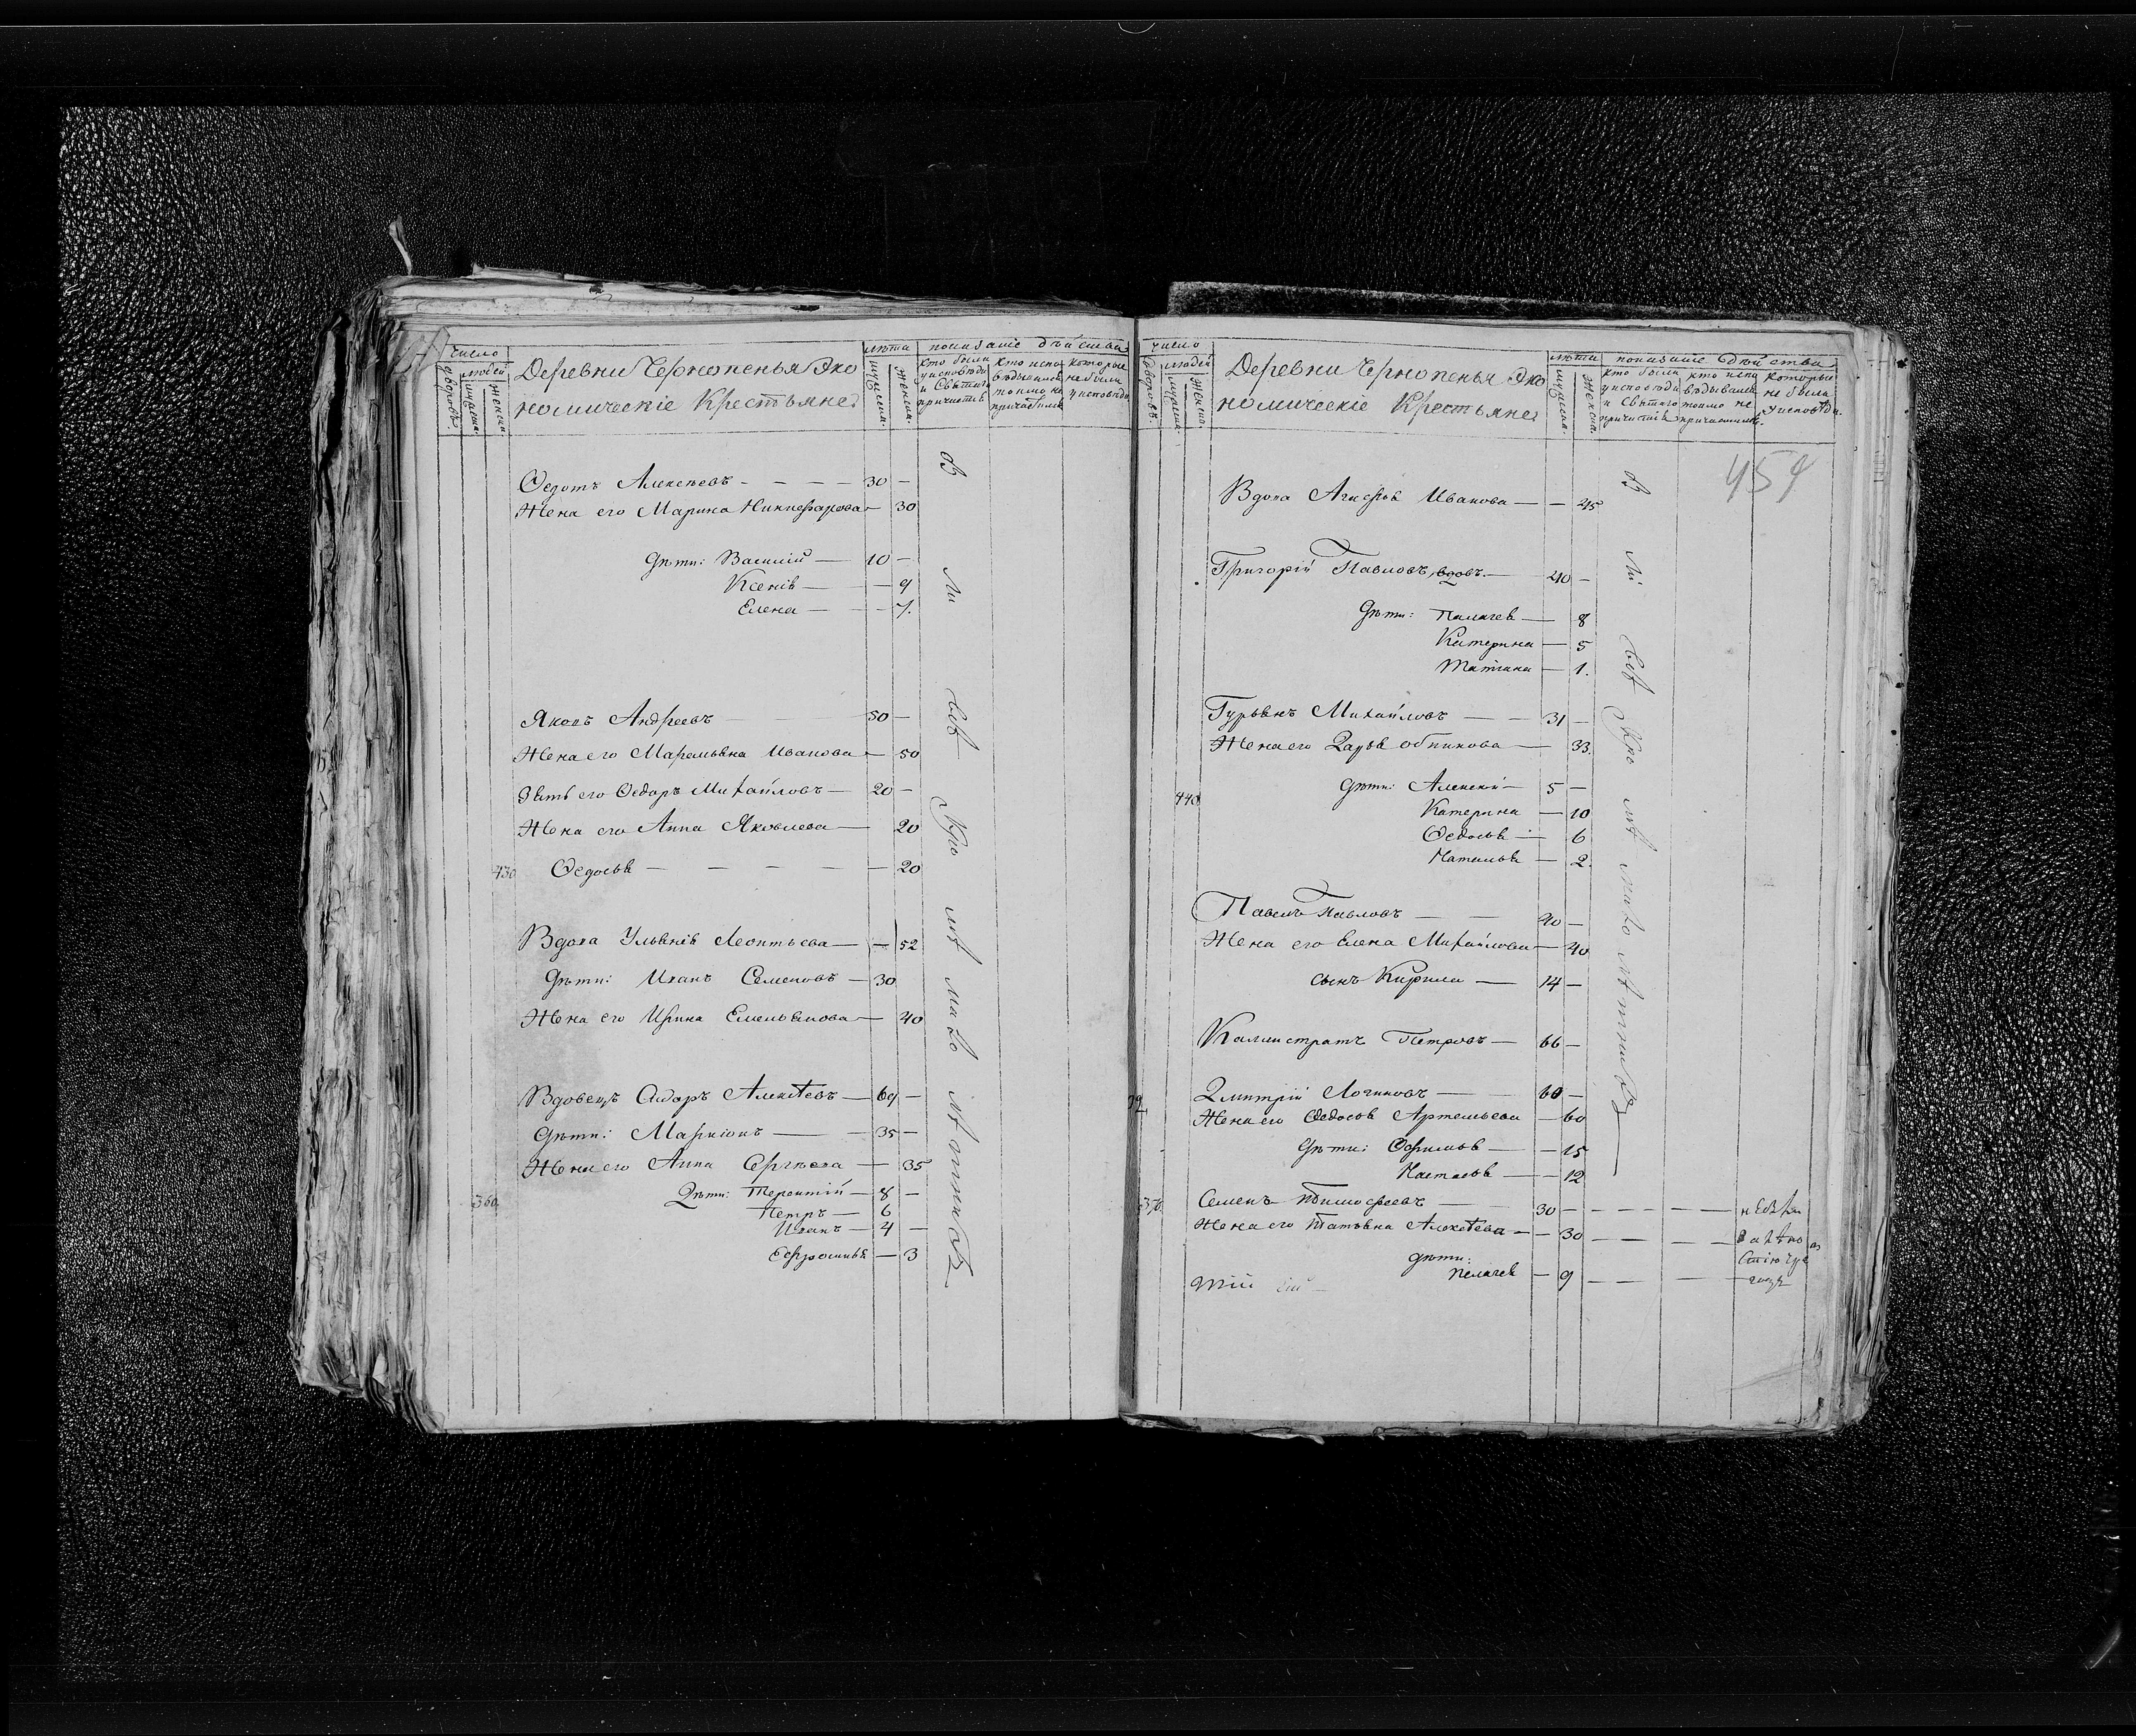 число
людей
дворовъ.
мужеска.
женска.
Деревни Чернопенья Эко
номическіе Крестьяне
лѣта
мужеска.
женска.
показаніе дѣйства
кто были
у исповѣди
и Святаго
причастія
кто испо
вѣдывался
токмо не
причастился
которые
не были
у исповѣди
Ѳедотъ Алексѣевъ - - - - 30 -
Жена его Марина Никифорова - 30
дѣти: Василій - 10 -
Ксенія - - 9
Елена - - 7.
Яковъ Андреевъ 50 -
Жена его Маремьяна Иванова - 50
Зять его Ѳедоръ Михайловъ - 20 -
Жена его Анна Яковлева - 20
430 Ѳедосья - - - - - 20
Вдова Ульянія Леонтьева - - 52
дѣти: Иванъ Семеновъ - 30
Жена его Ирина Емельянова - 40
Вдовецъ Сидоръ Алексѣевъ - 69 -
дѣти: Маркіонъ - 35 -
Жена его Анна Сергѣева - 35
Дѣти: Терентій - 8 -
360 Петръ - 6
Иванъ - 4 -
Ефросинья - 3
число
людей
дворовъ.
мужеска.
женска.
Деревни Чернопенья Эко
номическіе Крестьяне
лѣта
мужеска.
женска.
показаніе дѣйства
кто были
у исповѣди
и Святаго
причастія
кто испо
вѣдывался
токмо не
причастился.
которые
не были
у исповѣди.
454
Вдова Агафья Иванова - - 45
Григорій Павловъ, вдовъ. - 40 -
дѣти: Палагея - 8
Катерина - 5
Татіана - 1.
Гурьянъ Михайловъ - - 31 -
Жена его Дарья - 33.
дѣти: Алексѣй - 5 -
440 Катерина - 10
Ѳедосья - 6
Наталья - 2.
Павелъ Павловъ - - 40 -
Жена его Елена Михайлова - 40
сынъ Кирила - 14 -
Калистратъ Петровъ - 66 -
Дмитрій Логиновъ - 60 -
Жена его Ѳедосья Артемьева - 60
дѣти: Офимья - - 15
Настасья - - 12
370 Семенъ Тимофеевъ 30 - - - -
Жена его Татьяна Алексѣева - - 30 - - -
дѣти:
Пелагея - 9 - - -